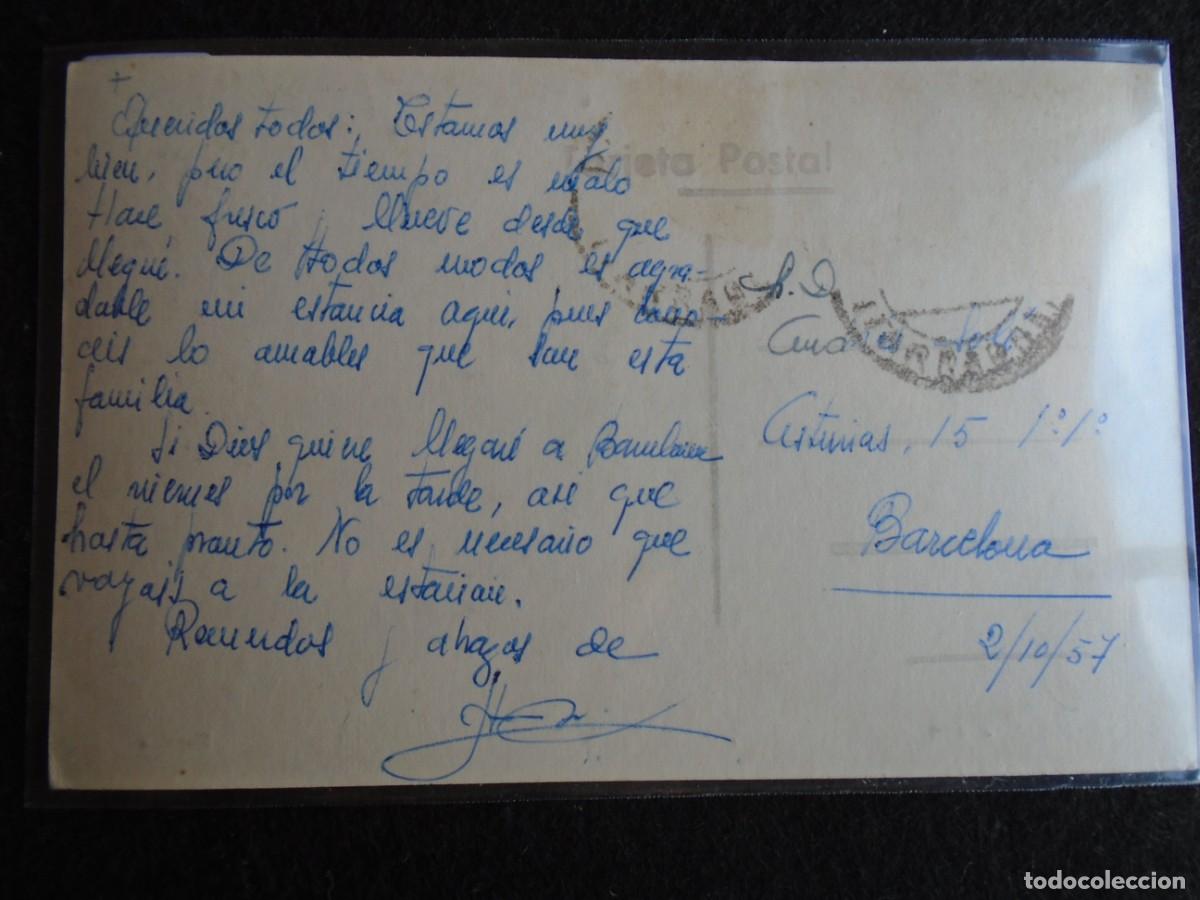 +
Queridos todos: Estamos muy
bien, pero el tiempo es malo
Hace fresco y llueve desde que
llegué. De todos modos es agra-
dable mi estancia aqui, pues cono-
ceis lo amables que son esta
familia.
Si Dios quiere llegaré a Barcelona
el viernes por la tarde, asi que
hasta pronto. No es necesario que
vayais a la estación.
Recuerdos y abrazos de
Tarjeta Postal
S. D.
Asturias, 15 1º 1º
Barcelona
2/10/57
TARRAGONA
todocoleccion